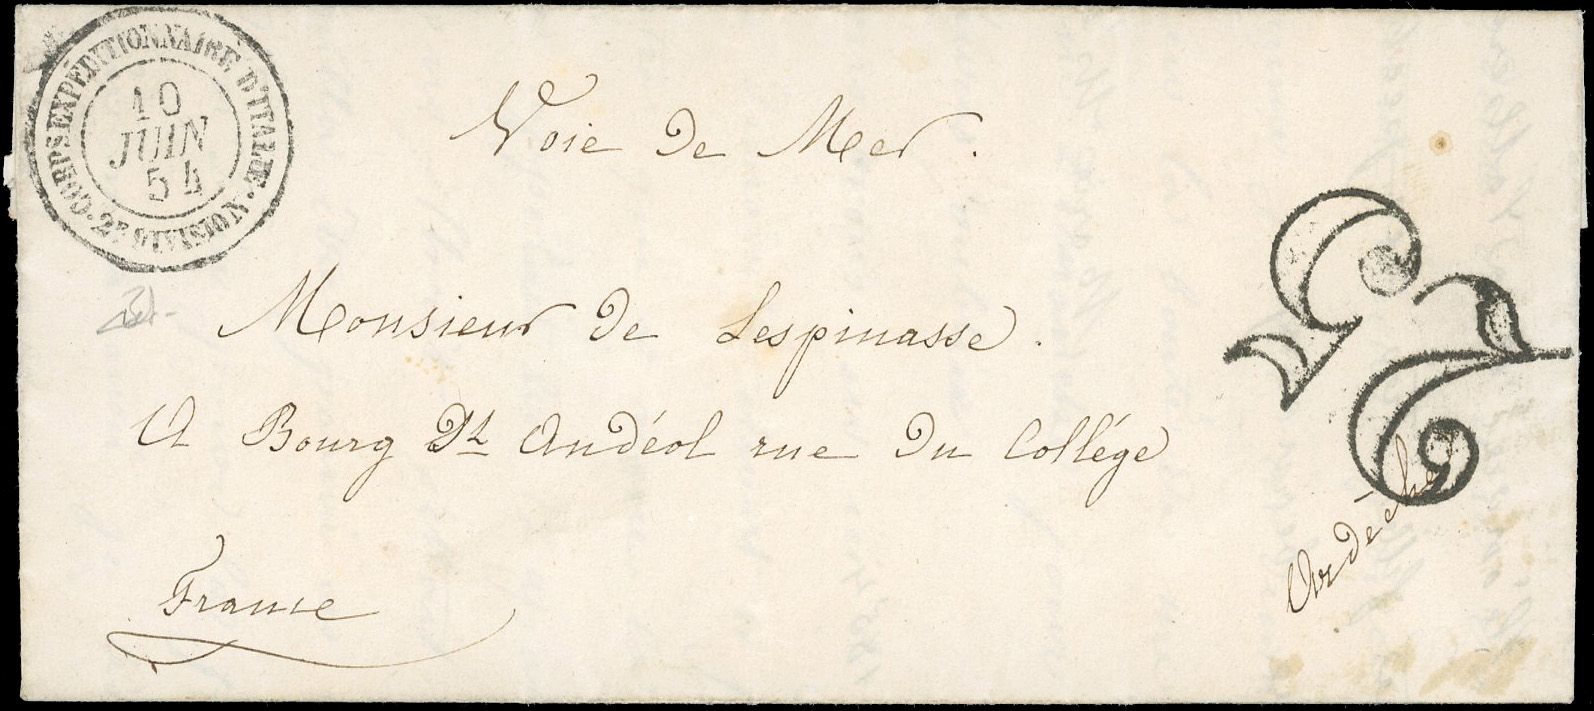 CORPS EXPÉDITIONNAIRE D'ITALIE · 2E DIVISION ·
10
JUIN
54
Voie De Mer .
Monsieur De Lespinasse .
A Bourg St Andéol rue Du Collége
Ardèche
France
25